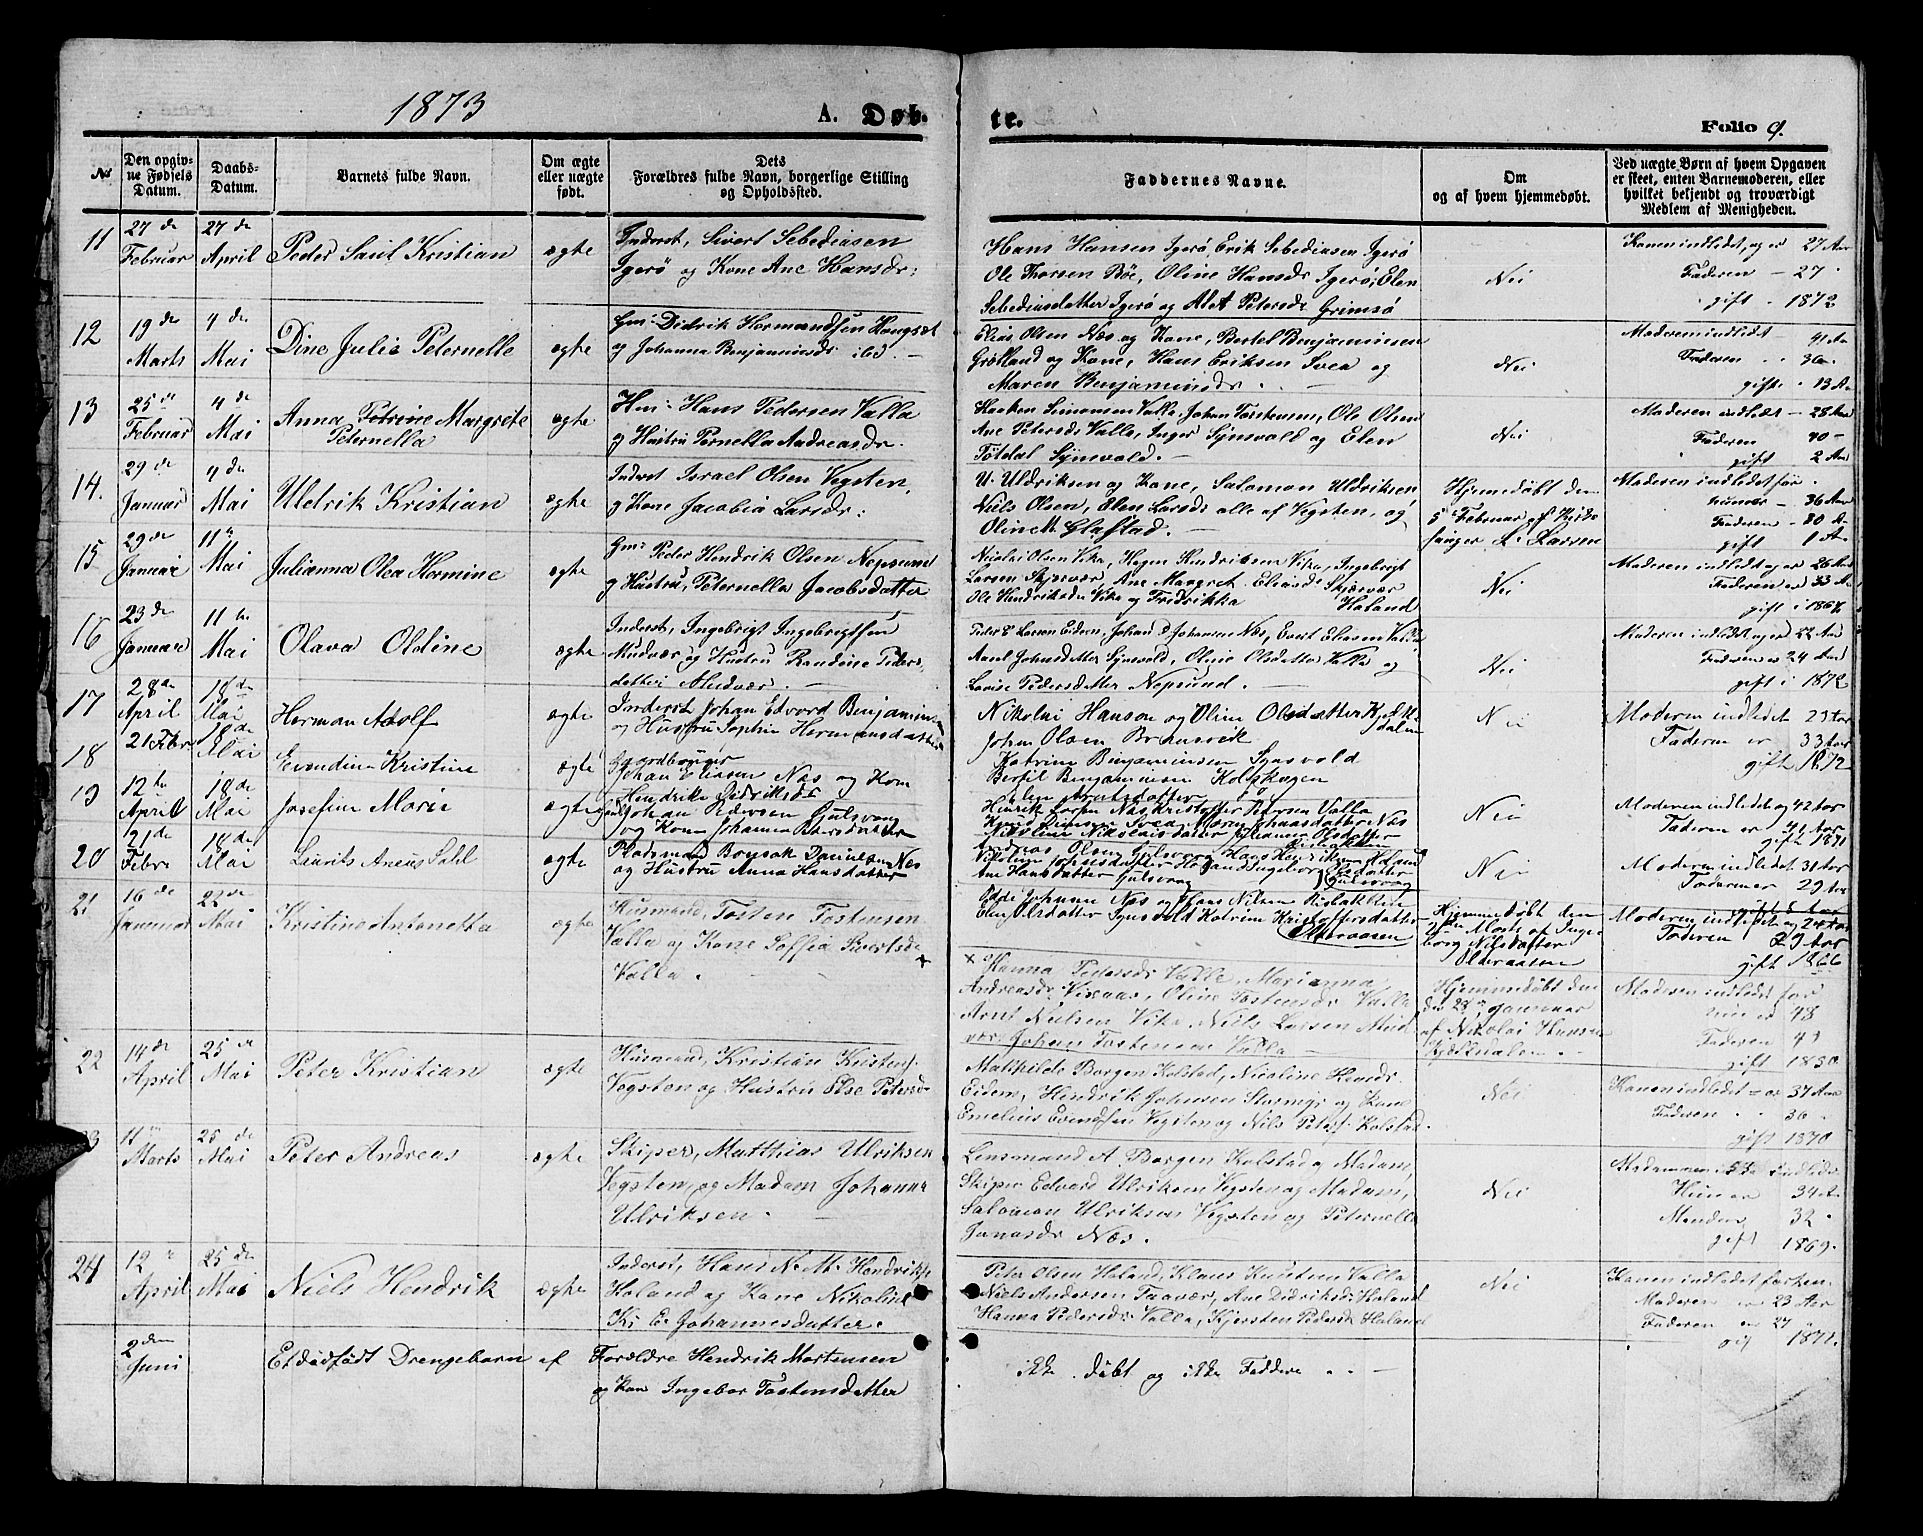 1873
A. Døb-
te.
Folio 9.
No
Den opgiv-
ne Fødsels
Datum.
Daabs-
Datum.
Barnets fulde Navn.
Om ægte
eller uægte
født.
Dets
Forældres fulde Navn, borgerlige Stilling
og Opholdssted.
Faddernes Navne.
Om
og af hvem hjemmedøbt.
Ved uægte Børn af hvem Opgaven
er skeet, enten Barnemoderen, eller
hvilket beskendt og troværdigt
Medlem af Menigheden.
11
27 de
Februar
27 de
April
Peder Saul Kristian
ægte
Inderst, Sivert Sebediasen
Igerø og Kone Ane Hansdr:
Hans Hansen Igerø, Erik Sebediasen Igerø
Ole Thorsen Bøe, Oline Hansdr Igerø, Elen
Sebediasdatter Igerø og Alet Petersdr Grimsø
Nei
Konen indledet, og er 27 Aar
Faderen - 27
gift - 1872
12
19 de
Marts
4 de
Mai
Dine Julie Peternelle
ægte
Gm: Didrik Hermandsen Hongset
og Johanna Benjaminsdr ibd. -
Elias Olsen Næs og Kone, Bertel Benjaminsen
Grølland og Kone, Hans Eriksen Svea og
Maren Benjaminsdr. -
Nei
Moderen indledet 41 Aar
Faderen 36
gift 13 Aar
13
25 de
Februar
4 de
Mai
Anna Petrine Margrete
Peternella
ægte
Hm: Hans Pedersen Valla
og Hustru Pernella Andreasdr.
Haaken Simonsen Valla, Johan Torstensen, Ole Olsen
Ane Petersdr Valla, Inger Synsvold og Elen
Totdal Synsvold. -
Nei
Moderen indlet - 28 Aar
Faderen 40 -
gift 2 Aar
14.
29 de
Januar
4 de
Mai
Uldrik Kristian
ægte
Inderst Israel Olsen Vegsten,
og Kone Jacobia Larsdr:
U. Uldriksen og Kone, Salomon Uldriksen
Niels Olsen, Elen Larsdr alle af Vegsten, og
Oline M. Glafstad. -
Hjemmedøbt den
5 Februar af Kirke
sanger L. Larsen
Moderen indledet for
hun er - 36 Aar
Faderen - 30
gift 1 Aar
15
29 de
Januar
11 te
Mai
Julianna Olea Hermine
ægte
Gm: Peder Hendrik Olsen Nepsund
og Hustru, Peternella Jacobsdatter
Nicolai Olsen Vika, Hagen Hendriksen Vika, Ingebrigt
Larsen Skjervær, Ane Margret. Eliasdr Skjærvær
Ole Hendriksdr Vika og Fridrikka Holand
Nei
Moderen indledet og er 26 Aar
Faderen er 33 Aar
gift i 1868
16
23 de
Januar
11 te
Mai
Olava Oldine
ægte
Inderst, Ingebrigt Ingebrigtsen
Mudvær og Hustru Randine Peders-
datter Mudvær. -
Peder E Larsen Eidem, Johan P Johansen Næs, Evert Eliasen Valla
Anel Johansdatter Synsvold, Oline Olsdatter Valla og
Lovise Pedersdatter Nepsund. -
Nei
Moderen indledet og er 22 Aar
Faderen er 24 Aar
gift i 1872
17
28 de
April
18 de
Mai
Herman Adolf
ægte
Inderst Johan Edvord Benjaminsen
og Hustru Sophie Hermansdatter
Nikolai Hanson og Oline Olsdatter Kjeldalen
Johan Olsen Brunsvik
Katrine Benjaminsen Synsvold
Bertil Benjaminsen Kolskogen
Nei
Moderen indledet 29 Aar
Faderen er 33 Aar
gift 1872
18
21 Febr
18 de
Mai
Evendine Kristine
ægte
Gaardbruger
Johan Eliasen Næs og Kone
Hendrikke Didriksdr
19
12 te
April
18 de
Mai
Josefine Marie
ægte
Johan Pedersen Gulsvaag
og Kone Johanna Bersdatter
Nei
Moderen indledet og 42 Aar
Faderen er 42 Aar
gift 1871
20
21 de
Febr
18 de
Mai
Laurits Aneus Dahl
ægte
Pladsmand Bonsak Danielsen Næs
og Hustru Anna Hansdatter
Nei
Moderen indledet 31 Aar
Faderen er 29 Aar
21
16 de
Januar
22 de
Mai
Kristine Antonetta
ægte
Husmand, Tosten Tostensen
Valla og Kone Soffia Sivertsdr
Valla. -
Elen Olsdatter Synsvold Katrine Kristoffersdatter
Olderaasen
x Hanna Pedersdr Valle, Marianna
Andreasdr Visaas, Oline Tostensdr Valla
Arnt Nielsen Vika, Niels Larsen Mud-
vær, Johan Tostensen Valla -
Hjemmedøbt den
Marts af Inge-
borg Nilsdatter
Olderaasen
Hjemmedøbt den
den 23 Januar
af Nikolai Hansen
Kjeldalen. -
Moderen indledet og 24 Aar
Faderen 29 Aar
gift 1866
Moderen indledet for
hun er 48
Faderen 49
gift 1850
22
14 de
April
25 de
Mai
Peter Kristian
ægte
Husmand, Kristian Kristens.
Vegsten og Hustru Else Petersdr
Mathilde Borgen Kolstad, Nicoline Hansdr
Eidem, Hendrik Johnsen Stormyr og Kone
Emelius Evendsen Vegsten og Nils Peters. Kolstad.
Nei
Konen indledet - er 37 Aar
Faderen 36
gift 1870
23
11 te
Marts
25 de
Mai
Peter Andreas
ægte
Skiper, Matthias Ulriksen
Vegsten, og Madam Johanna
Ulriksen. -
Lensmand A. Borgen Kolstad og Madam,
Skiper Edvard Ulriksen Vegsten og Madam,
Salomon Ulriksen Vegsten og Peternella
Jonasdr Næs. -
Nei
Hun er 34 Aar
Manden 32
gift 1869.
24
12
April
25 de
Mai
Niels Hendrik
ægte
Inderst, Hans N. M. Hendriks.
Holand og Kone Nikoline
K. E. Johannesdatter.
Peter Olsen Holand, Klaus Knutsen Valla
Niels Andersen Taavær, Ane Didriksdr Holand
Hanna Pedersdr Valla, Kjersten Pedersdr Holand
Nei
Konen indledet forhen.
Moderen er 23 Aar
Faderen er 27
gift 1871.
2 den
Juni
Et dødfødt Drengebarn af
Forældre Hendrik Mortensen
og Kone Ingebor Tostensdatter
ikke døbt og ikke Faddere -